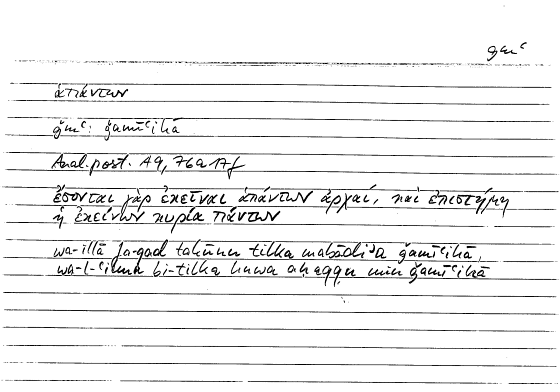 ǧmʿ
ἁπάντων
ǧmʿ: ǧamīʿihā
Anal. post. A9, 76a17f
ἔσονται γὰρ ἐκεῖναι ἁπάντων ἀρχαί, καὶ ἐπιστήμη
ἡ ἐκείνων κυρία πάντων
wa-illā fa-qad takūnu tilka mabādiʾa ǧamīʿihā,
wa-l-ʿilmu bi-tilka huwa aḥaqqu min ǧamīʿihā